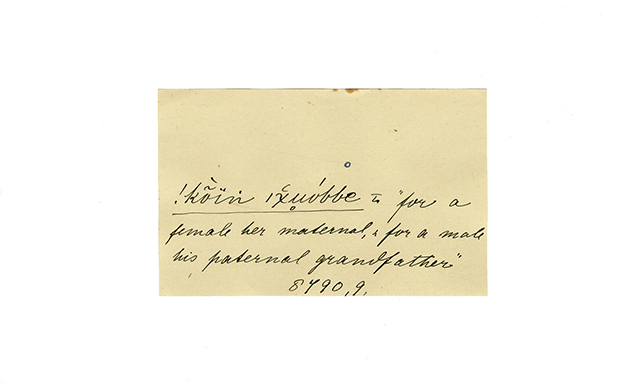 !kõïn ıχu̥óbbe = "for a
female her maternal, & for a male
his paternal grandfather"
8790,9.